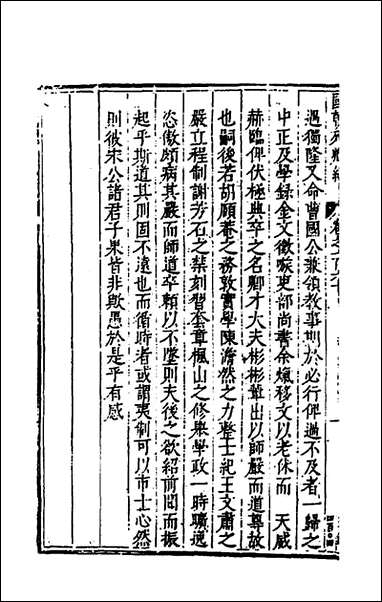 遇獨隆又命曹國公兼領教事期於必行俾過不及者一歸之
中正及學録金文徵嗾吏部尚書余熂移文以老休而　天威
赫臨俾伏極典卒之名卿才大夫彬彬輩出以師嚴而道尊故
也嗣後若胡頤菴之務敦實學陳澹然之力整士紀王文肅之
嚴立程制謝芳石之禁刻習套章楓山之修舉學政一時曠逸
恣傲頗病其嚴而師道卒頼以不墜則夫後之欲紹前聞而振
起乎斯道其則固不遠也而循時者或謂夷制可以市士心然
則彼宋公諸君子果皆非歟愚於是乎有感